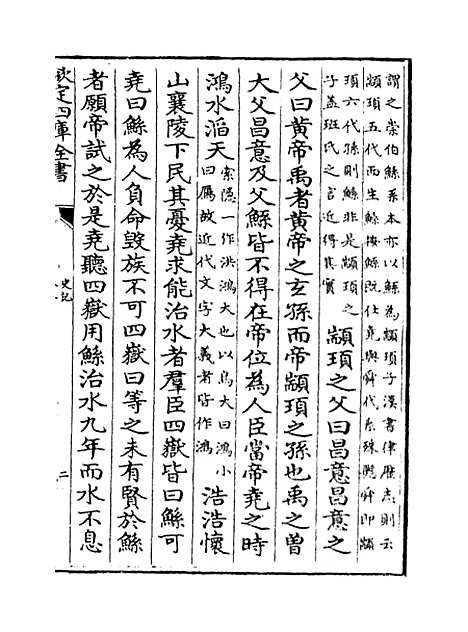 謂之崇伯鯀系本亦以鯀為顓頊子漢書律厯志則云
顓頊五代而生鯀按鯀既仕堯與舜代系殊懸舜即顓
頊六代孫則鯀非是顓頊之
子盖班氏之言近得其實
顓頊之父曰昌意昌意之
父曰黄帝禹者黄帝之玄孫而帝顓頊之孫也禹之曽
大父昌意及父鯀皆不得在帝位為人臣當帝堯之時
鴻水滔天
索隠一作洪鴻大也以鳥大曰鴻小
曰鴈故近代文字大義者皆作鴻
浩浩懷
山襄陵下民其憂堯求能治水者羣臣四嶽皆曰鯀可
堯曰鯀為人負命毁族不可四嶽曰等之未有賢於鯀
者願帝試之於是堯聽四嶽用鯀治水九年而水不息
欽定四庫全書
史記
二